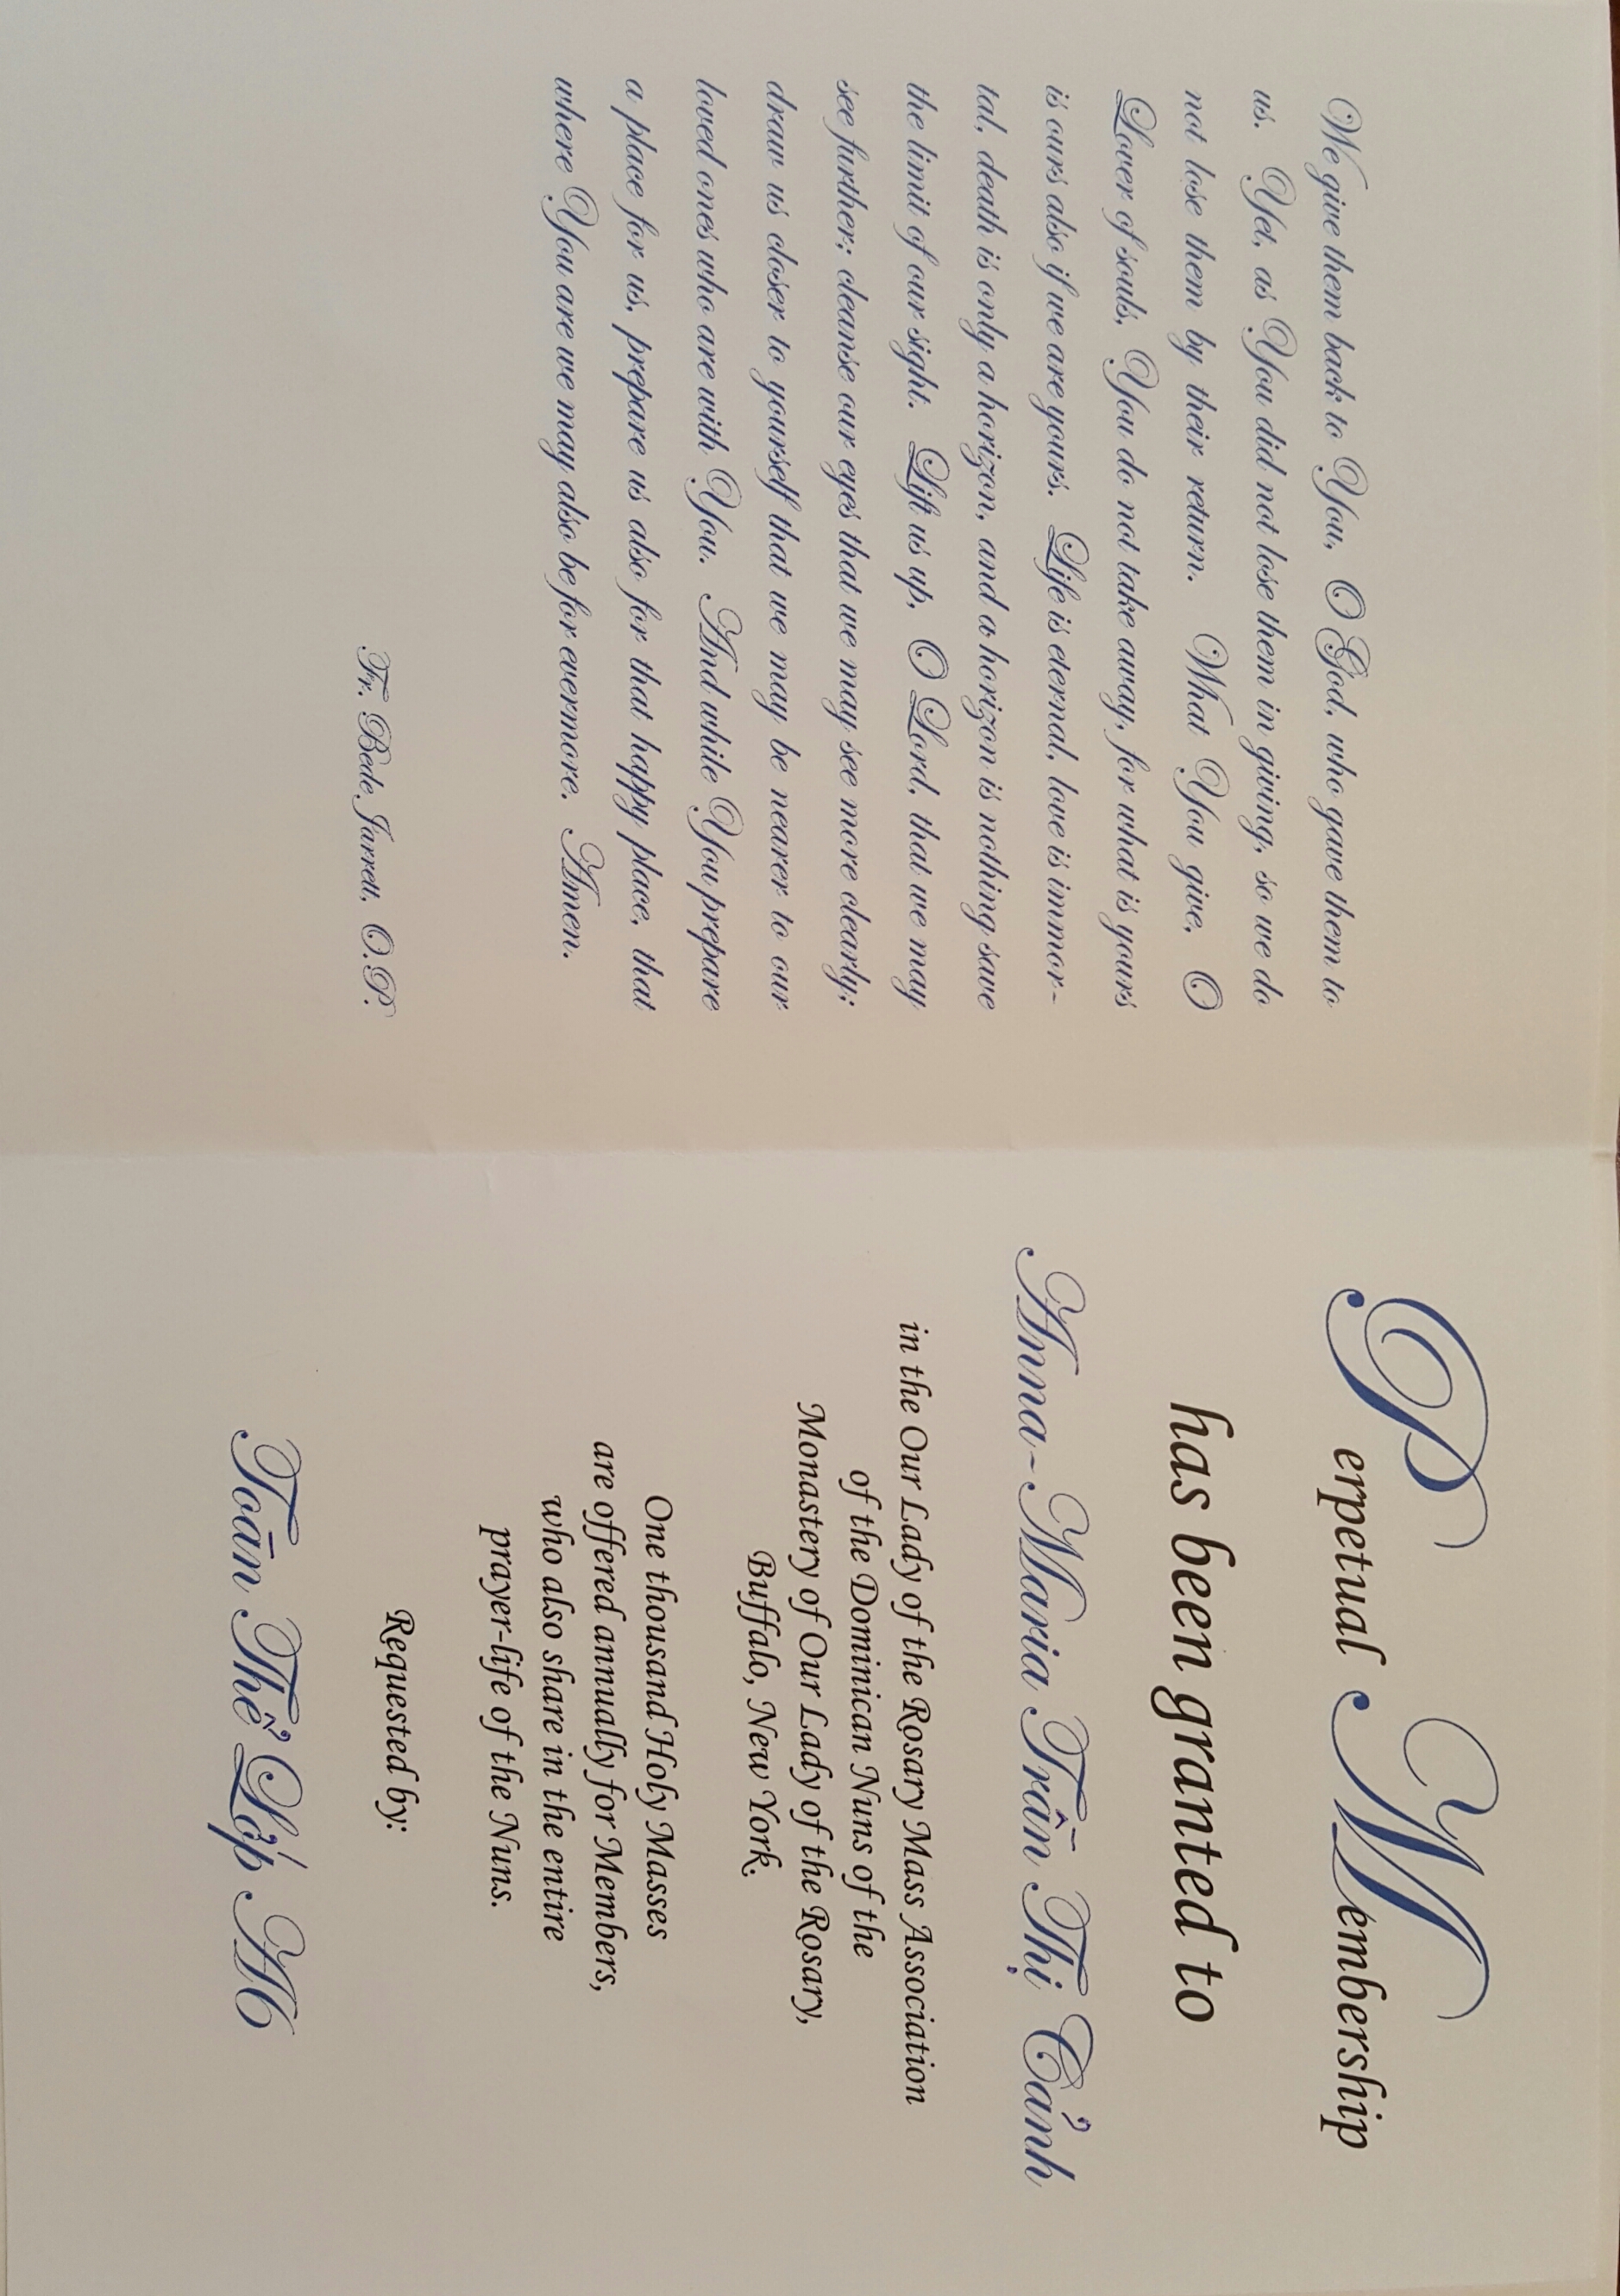 We give them back to You, O God, who gave them to
us. Yet, as You did not lose them in giving, so we do
not lose them by their return. What You give, O
Lover of souls, You do not take away, for what is yours
is ours also if we are yours. Life is eternal, love is immor-
tal, death is only a horizon, and a horizon is nothing save
the limit of our sight. Lift us up, O Lord, that we may
see further; cleanse our eyes that we may see more clearly;
draw us closer to yourself that we may be nearer to our
loved ones who are with You. And while You prepare
a place for us, prepare us also for that happy place, that
where You are we may also be for evermore. Amen.
Fr. Bede Jarrett, O.P.
Perpetual Membership
has been granted to
Anna-Maria Trần Thị Cảnh
in the Our Lady of the Rosary Mass Association
of the Dominican Nuns of the
Monastery of Our Lady of the Rosary,
Buffalo, New York.
One thousand Holy Masses
are offered annually for Members,
who also share in the entire
prayer-life of the Nuns.
Requested by:
Toān Thể Lớp